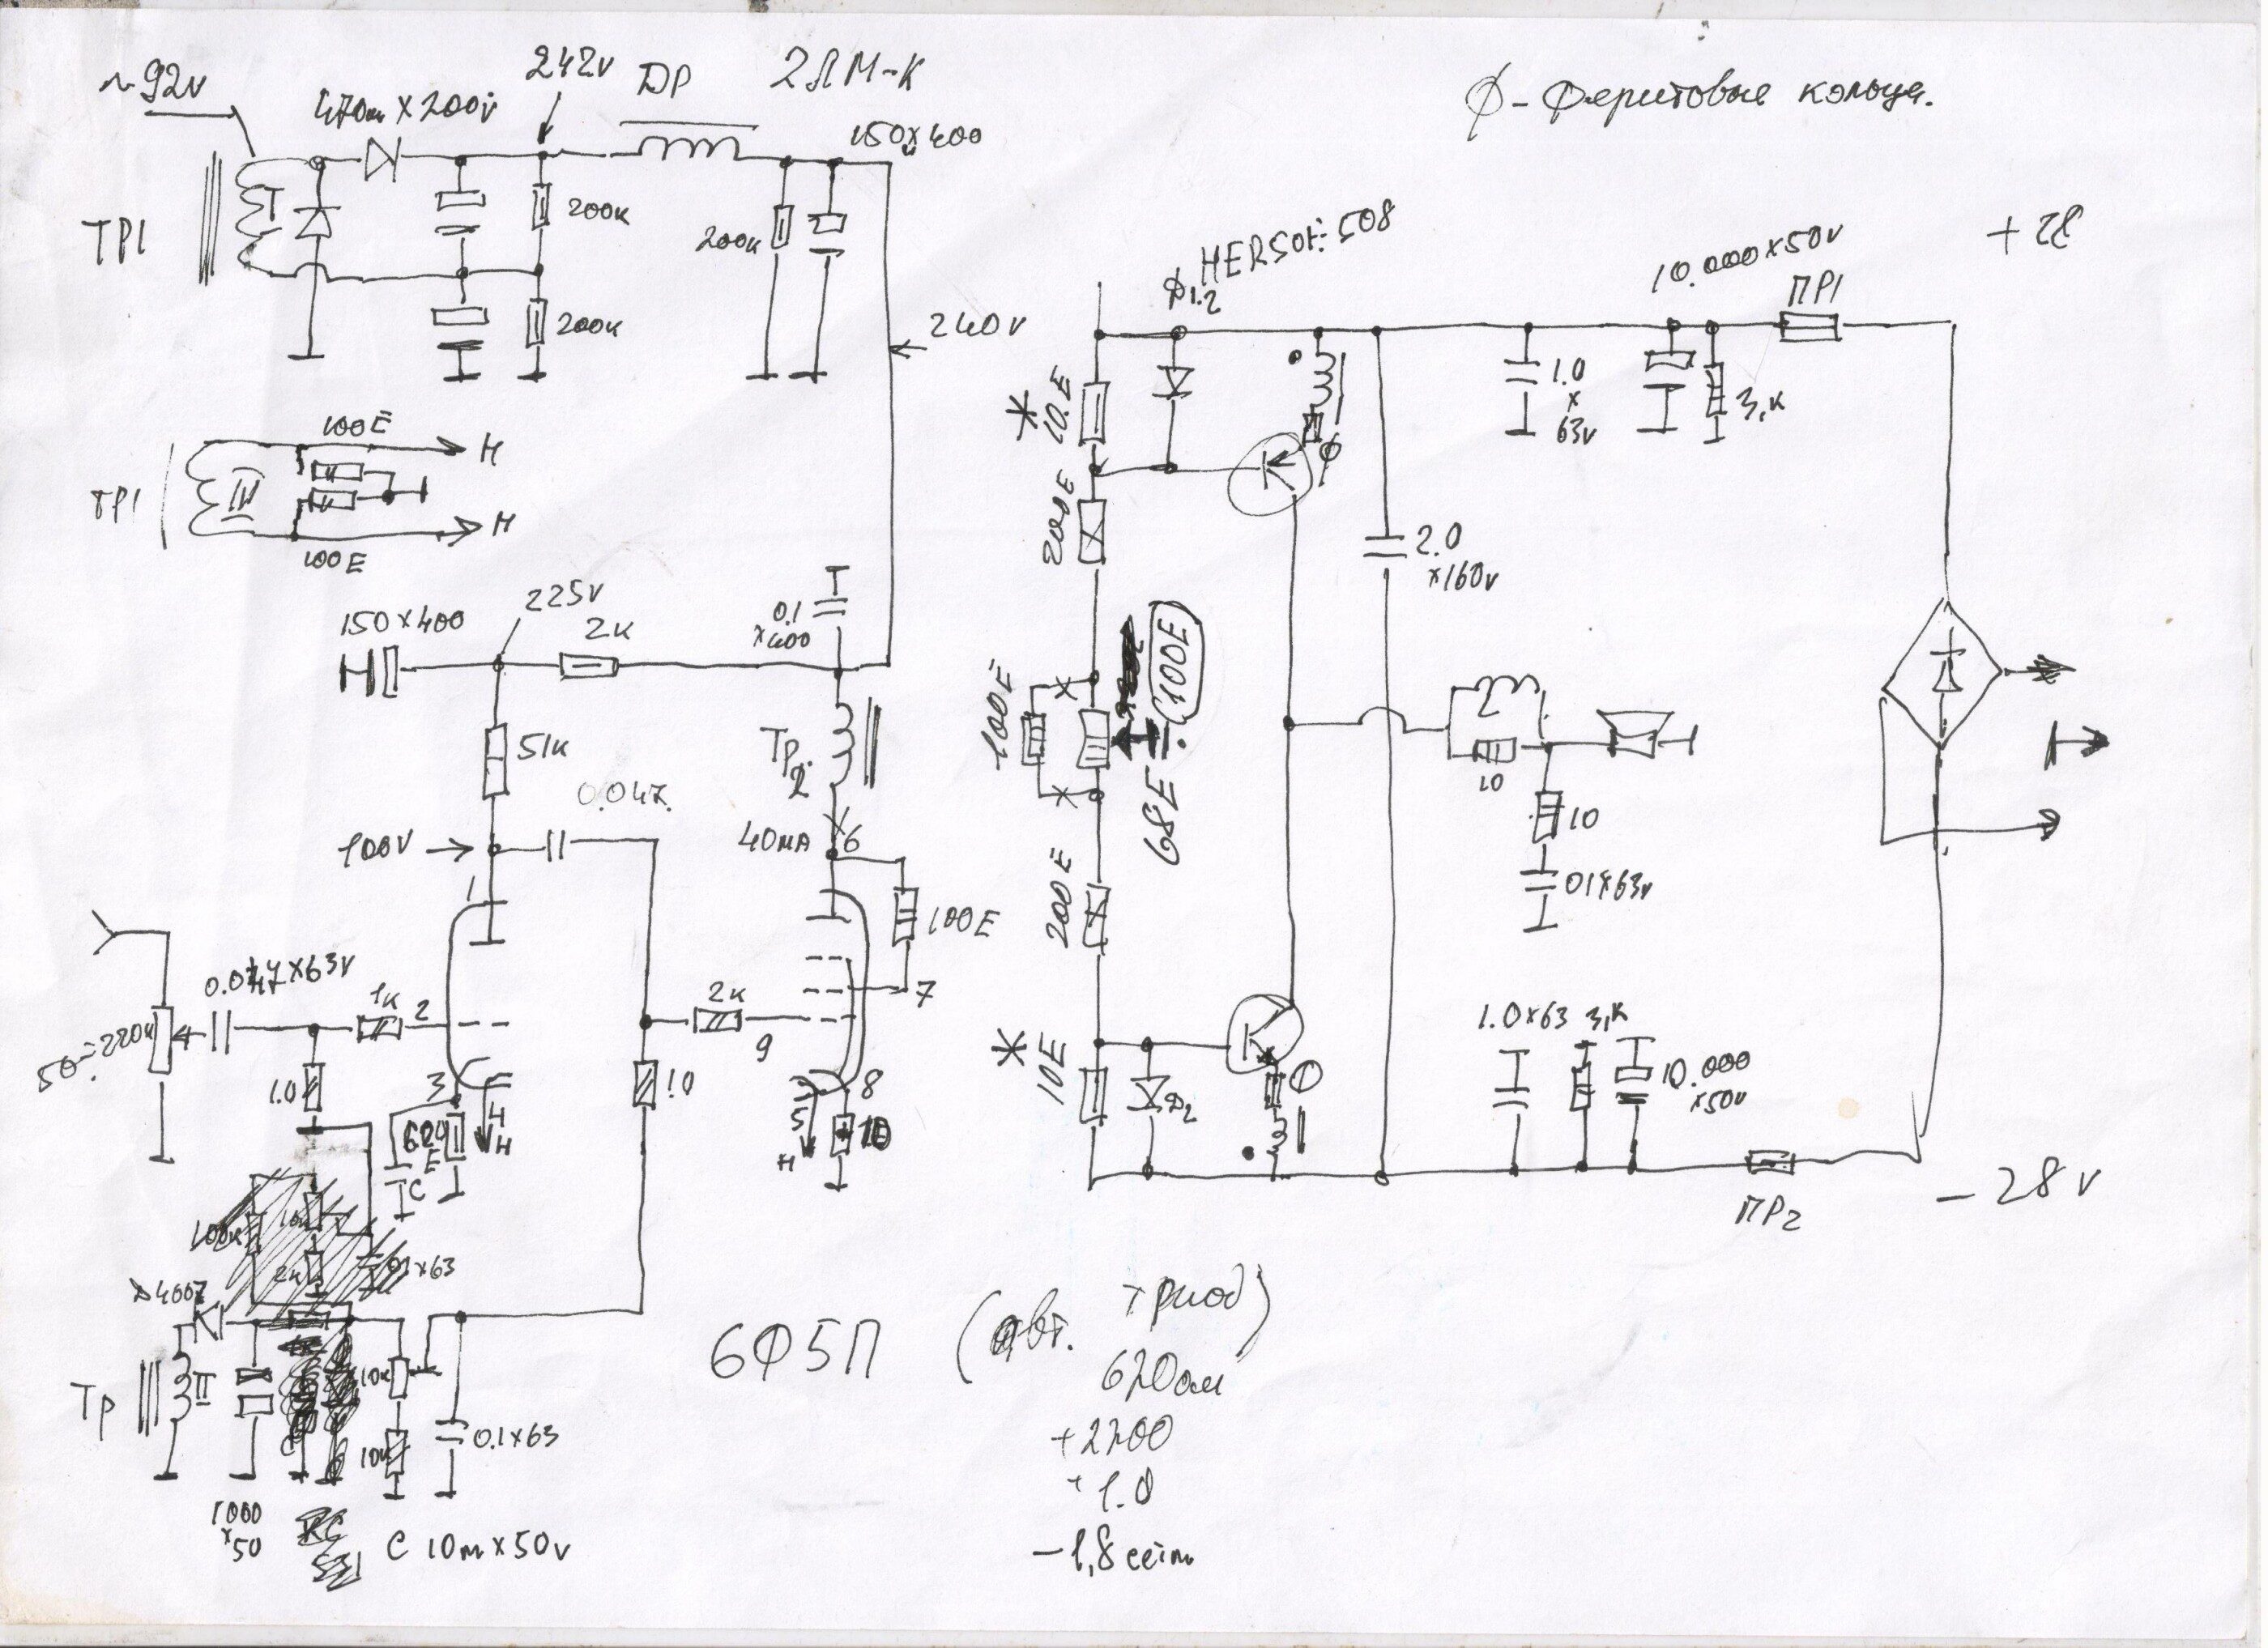 ~92v
470m x 200v
242v
ДР
2ЛМ-К
150x400
ф - феритовые кольца.
ТР1
200к
200к
200к
240v
HER501÷508
10.000x50v
ПР1
+28
1.0
x
63v
3,к
* 10.E
ф
100E
H
ТР1
IV
H
100E
200E
2.0
x160v
225v
150x400
2к
0.1
x400
51к
Тр.2
100E
68E÷
100E
10
10
01x63v
0.047.
100v
40мА
6
1
100E
7
200E
0.047x63v
1к
2
2к
9
50÷220к
1.0
3
4
H
620
E
C
1.0
5
H
8
10
* 10E
Д2
Ф
1.0x63
3,к
10.000
x50v
ПР2
-28v
100к
2к
01x63
Д4007
Тр
II
10к
10к
0.1x63
1000
x50
C 10m x 50v
6Ф5П
(авт. триод)
620ом
+2200
+1.0